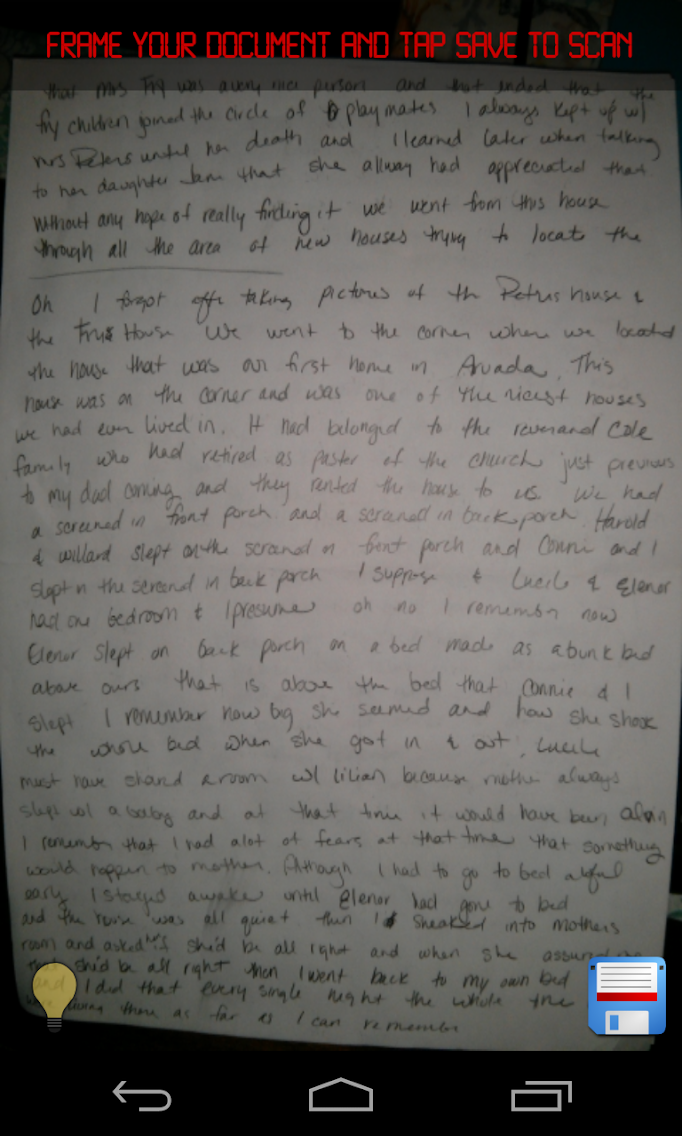 FRAME YOUR DOCUMENT AND TAP SAVE TO SCAN
that Mrs Fry was a very nice person and that ended that the
Fry children joined the circle of playmates I always kept up w/
Mrs Peters until her death and I learned later when talking
to her daughter Jane that she allway had appreciated that.
Without any hope of really finding it we went from this house
through all the area of new houses trying to locate the
Oh I forgot after taking pictures of the Peters house &
the Frys House We went to the corner where we located
the house that was our first home in Arvada. This
house was on the corner and was one of the nicest houses
we had ever lived in. It had belonged to the reverand Cole
family who had retired as paster of the church just previous
to my dad coming and they rented the house to us. We had
a screened in front porch and a screened in back porch. Harold
& Willard slept on the screened in front porch and Connie and I
slept in the screened in back porch I suppose & Lucile & Elenor
had one bedroom & I presume oh no I remember now
Elenor slept on back porch on a bed made as a bunk bed
above ours that is above the bed that Connie & I
slept I remember how big she seemed and how she shook
the whole bed when she got in & out. Lucile
must have shared a room w/ Lilian because mother always
slept w/ a baby and at that time it would have been
I remember that I had alot of fears at that time that something
would happen to mother. Although I had to go to bed awful
early I stayed awake until Elenor had gone to bed
and the house was all quiet then I sneaked into mothers
room and asked if she'd be all right and when she assured me
that she'd be all right then I went back to my own bed
and I did that every single night the whole time
living there as far as I can remember